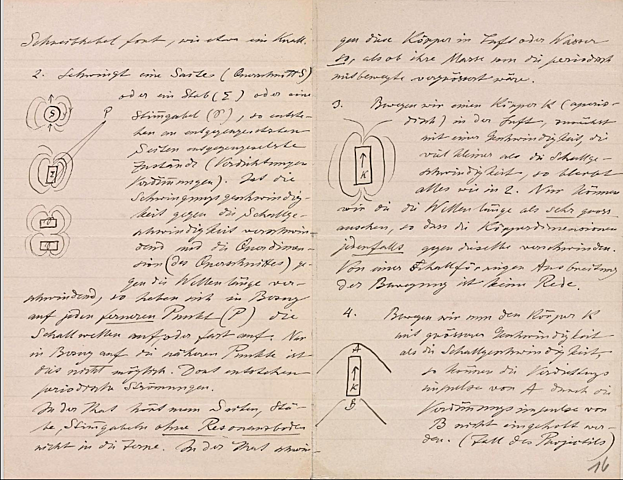 Schreibhebel fort, wie etwa ein Knall.
2. Schwingt eine Saite (Querschnitt S)
oder ein Stab (Σ) oder eine
Stimgabel (σ), so entste-
hen an entgegengesetzten
Seiten entgegengesetzte
Zustände (Verdichtungen
Verdünnungen). Ist die
Schwingungsgeschwindig-
keit gegen die Schallge-
schwindigkeit verschwin-
dend und die Querdimen-
sion (des Querschnittes) ge-
gen die Wellenlänge ver-
schwindend, so heben sich in Bezug
auf jeden ferneren Punkt (P) die
Schallwellen auf oder fast auf. Nur
in Bezug auf die näheren Punkte ist
dies nicht möglich. Dort entstehen
periodische Strömungen.
In der That hört man Saiten, Stä-
be, Stimgabeln ohne Resonanzboden
nicht in die Ferne. In der That schwin-
S
P
Σ
σ
σ
gen diese Körper in Luft oder Wasser
so, als ob ihre Masse um die periodisch
mitbewegte vergrössert wäre.
3. Bewegen wir einen Körper K (aperio-
disch) in der Luft, zunächst
mit einer Geschwindigkeit, die
viel kleiner als die Schallge-
schwindigkeit, so bleibt
alles wie in 2. Nur können
wir da die Wellenlänge als sehr gross
ansehen, so dass die Körperdimensionen
jedenfalls gegen dieselbe verschwinden.
Von einer schallförmigen Ausbreitung
der Bewegung ist keine Rede.
K
4. Bewegen wir nun den Körper K
mit grösserer Geschwindigkeit
als die Schallgeschwindigkeit,
so können die Verdichtungs
impulse von A durch die
Verdünnungsimpulse von
B nicht eingeholt wer-
den. (Fall des Projectils)
A
K
B
16